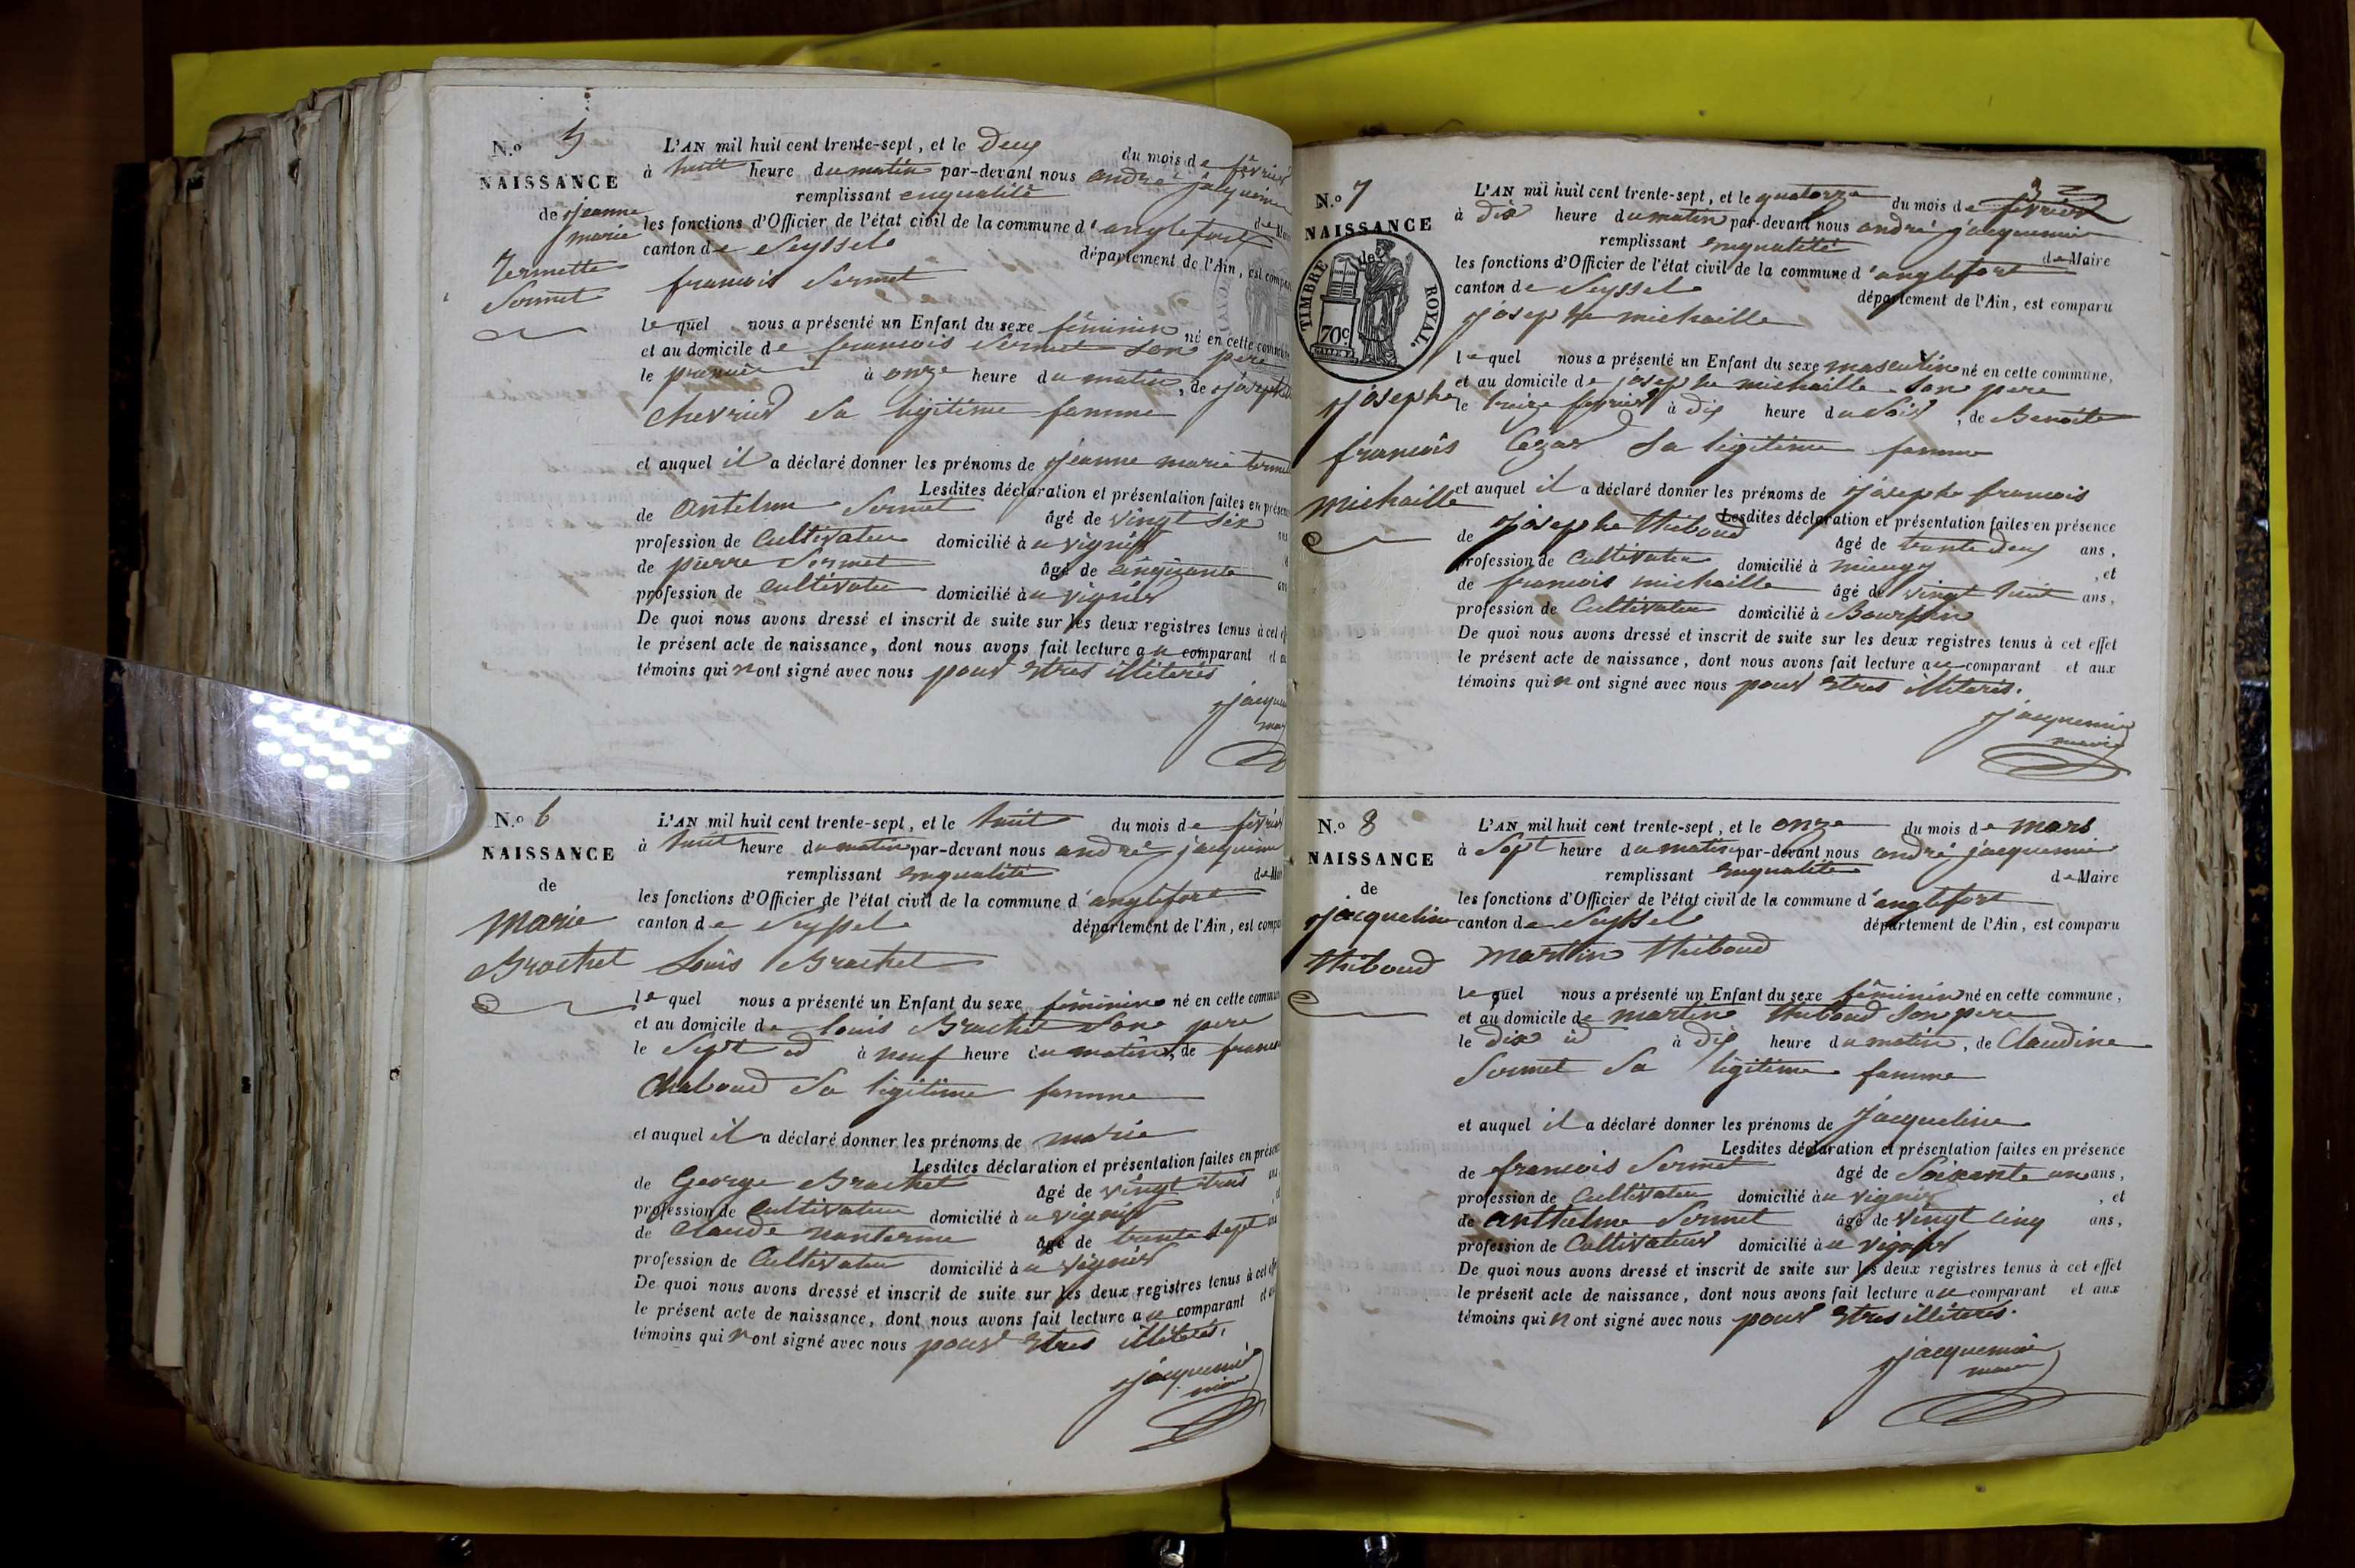 N.o 5
NAISSANCE
de Jeanne
marie
Sermet
L'AN mil huit cent trente-sept, et le Deux du mois de février
à huit heure du matin par-devant nous andré jacquemin
remplissant enqualité de
les fonctions d'Officier de l'état civil de la commune d'anglefort
canton de Seyssel département de l'Ain, est
francois Sermet
le quel nous a présenté un Enfant du sexe féminin né en cette
et au domicile de francois Sermet son pere
le premier à onze heure du matin, de
Chevrier Sa légitime famme
et auquel il a déclaré donner les prénoms de Jeanne marie
Lesdites déclaration et présentation faites en
de antelme Sermet âgé de vingt six
profession de Cultivateur domicilié au vignier
de pierre Sermet âgé de cinquante
profession de cultivateur domicilié au vignier
De quoi nous avons dressé et inscrit de suite sur les deux registres tenus à cet
le présent acte de naissance, dont nous avons fait lecture au comparant et
témoins qui n'ont signé avec nous pour Etres illiterés
N.o 6
NAISSANCE
de
Marie
Brachet
L'AN mil huit cent trente-sept, et le huit du mois de février
à huit heure du matin par-devant nous andré jacquemin
remplissant enqualité de
les fonctions d'Officier de l'état civil de la commune d'anglefort
canton de Seyssel département de l'Ain, est
Louis Brachet
le quel nous a présenté un Enfant du sexe féminin né en cette
et au domicile de louis Brachet son pere
le Sept à neuf heure du matin, de
Chaboud Sa légitime famme
et auquel il a déclaré donner les prénoms de marie
Lesdites déclaration et présentation faites en
de George Brachet âgé de vingt trois
profession de Cultivateur domicilié au vignier
de Claude âgé de trente sept
profession de Cultivateur domicilié au vignier
De quoi nous avons dressé et inscrit de suite sur les deux registres tenus à cet
le présent acte de naissance, dont nous avons fait lecture au comparant
témoins qui n'ont signé avec nous pour Etres illiterés.
jacquemin
N.o 7
NAISSANCE
de
TIMBRE ROYAL.
70c
Josephe
francois
michaille
L'AN mil huit cent trente-sept, et le quatorze du mois de février
à dix heure du matin par-devant nous andré jacquemin
remplissant enqualité de Maire
les fonctions d'Officier de l'état civil de la commune d'anglefort
canton de Seyssel département de l'Ain, est comparu
Josephe michaille
le quel nous a présenté un Enfant du sexe masculin né en cette commune,
et au domicile de josephe michaille son pere
le treize février à dix heure du Soir, de Benoite
Cezar Sa légitime famme
et auquel il a déclaré donner les prénoms de Josephe francois
Lesdites déclaration et présentation faites en présence
de Josephe thiboud âgé de trente deux ans,
profession de Cultivateur domicilié à , et
de francois michaille âgé de vingt huit ans,
profession de Cultivateur domicilié à
De quoi nous avons dressé et inscrit de suite sur les deux registres tenus à cet effet
le présent acte de naissance, dont nous avons fait lecture au comparant et aux
témoins qui n'ont signé avec nous pour Etres illiterés.
Jacquemin
maire
N.o 8
NAISSANCE
de
Jacqueline
thiboud
L'AN mil huit cent trente-sept, et le onze du mois de mars
à Sept heure du matin par-devant nous andré jacquemin
remplissant enqualité de Maire
les fonctions d'Officier de l'état civil de la commune d'anglefort
canton de Seyssel département de l'Ain, est comparu
Martin thiboud
le quel nous a présenté un Enfant du sexe féminin né en cette commune,
et au domicile de martin thiboud son pere
le dix à dix heure du matin, de Claudine
Sermet Sa légitime famme
et auquel il a déclaré donner les prénoms de Jacqueline
Lesdites déclaration et présentation faites en présence
de francois Sermet âgé de Soixante un ans,
profession de Cultivateur domicilié au vignier , et
de anthelme Sermet âgé de vingt cinq ans,
profession de Cultivateur domicilié au vignier
De quoi nous avons dressé et inscrit de suite sur les deux registres tenus à cet effet
le présent acte de naissance, dont nous avons fait lecture au comparant et aux
témoins qui n'ont signé avec nous pour Etres illiterés.
Jacquemin
maire